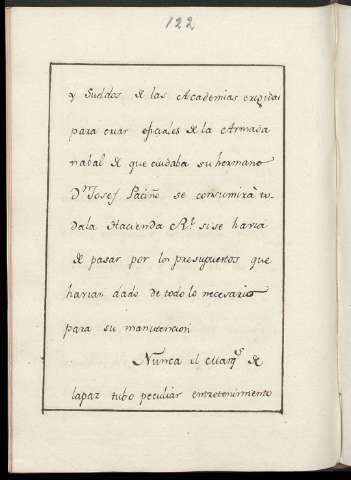 122
y Sueldos de las Academias erigidas
para criar oficiales de la Armada
nabal de que cuidaba su hermano
D.n Josef Patiño se consumirà to-
da la Hacienda R.l si se havia
de pasar por los presupuestos que
havian dado de todo lo necesario
para su manutencion
Nunca el Marq.s de
la paz tubo peculiar entretenimiento